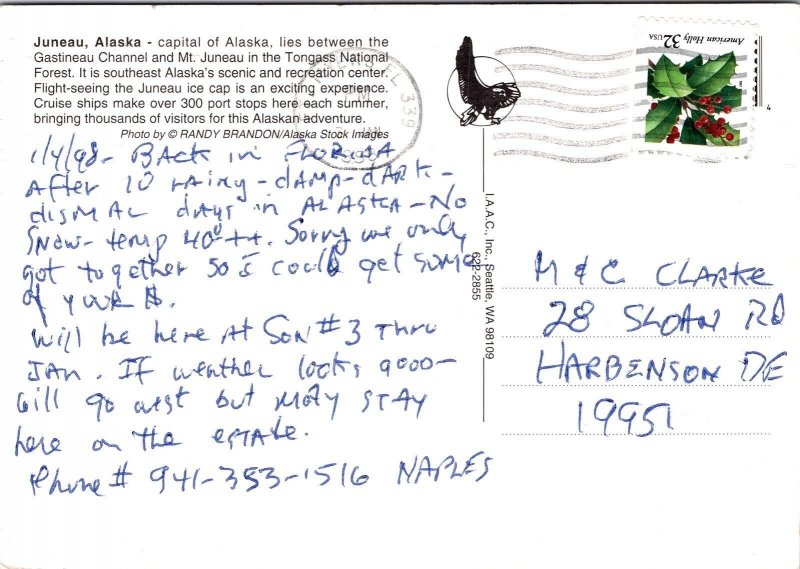 Juneau, Alaska - capital of Alaska, lies between the
Gastineau Channel and Mt. Juneau in the Tongass National
Forest. It is southeast Alaska's scenic and recreation center.
Flight-seeing the Juneau ice cap is an exciting experience.
Cruise ships make over 300 port stops here each summer,
bringing thousands of visitors for this Alaskan adventure.
Photo by © RANDY BRANDON/Alaska Stock Images
1/4/98- BACK in FLORIDA
After 10 rainy-damp-dark-
dismal days in ALASTKA-No
Snow-temp 40°++. Sorry we only
got together so I could get some
of your $.
Will be here at Son #3 Thru
JAN. If weather looks good-
will go west but may STAY
here on the estate.
Phone # 941-353-1516 NAPLES
I.A.A.C., Inc., Seattle, WA 98109
622-2855
American Holly
32 USA
FL 339
PM
M & C CLARKE
28 SLOAN RD
HARBENSON DE
19951
4